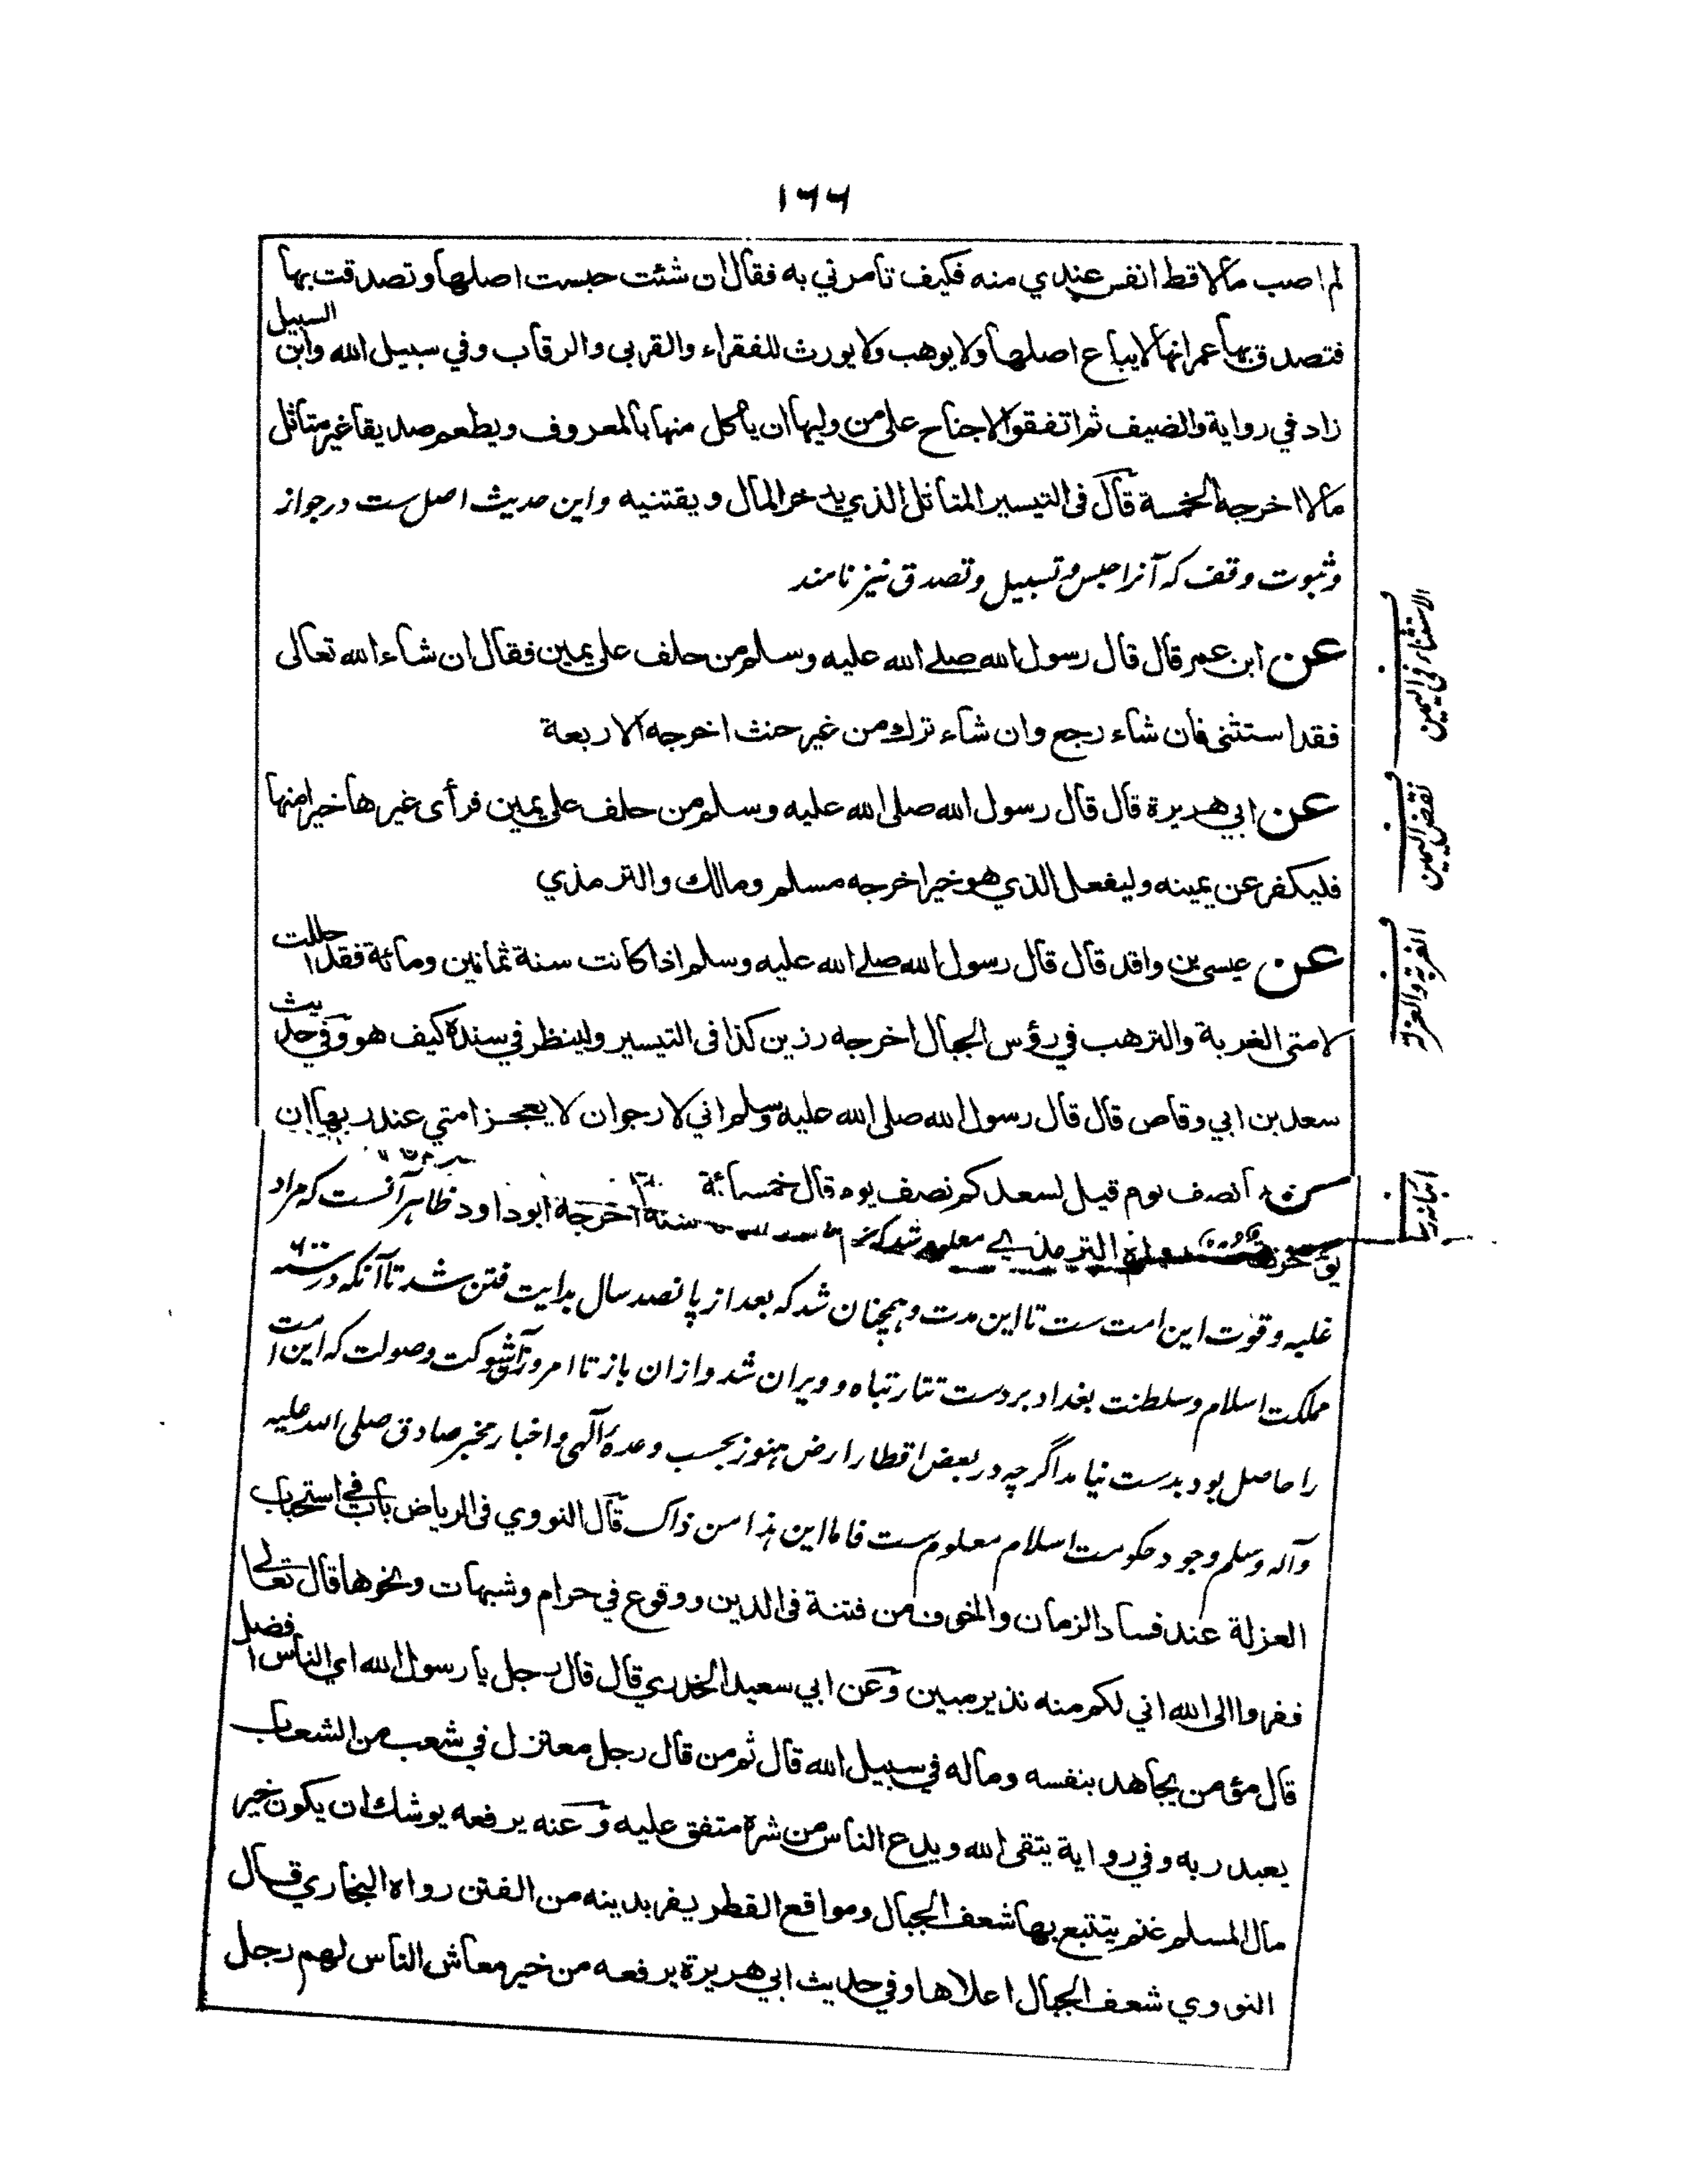 ١٦٦
لم اصب مالا قط انفس عندي منه فكيف تامرني به فقال ان شئت حبست اصلها وتصدقت بها
فتصدق بها عمر انها لا يباع اصلها ولا يوهب ولا يورث للفقراء والقربى والرقاب وفي سبيل الله وابن السبيل
زاد في رواية والضيف ثم اتفقوا لاجناح على من وليها ان ياكل منها بالمعروف ويطعم صديقا غير متاثل
مالا اخرجه الخمسة قال فى التيسير المتاثل الذي يدخر المال ويقتنيه واين حديث اصل ست در جواز
وثبوت وقف كه آنرا حبس وتسبيل وتصدق نيز نامند
عن ابن عمر قال قال رسول الله صلى الله عليه وسلم من حلف على يمين فقال ان شاء الله تعالى
فقد استثنى فان شاء رجع وان شاء ترك من غير حنث اخرجه الاربعة
عن ابي هريرة قال قال رسول الله صلى الله عليه وسلم من حلف على يمين فرأى غيرها خيرا منها
فليكفر عن يمينه وليفعل الذي هو خير اخرجه مسلم ومالك والترمذي
عن عيسى بن واقد قال قال رسول الله صلى الله عليه وسلم اذا كانت سنة ثمانين ومائة فقد احللت
لامتى الغربة والترهب في رؤس الجبال اخرجه رزين كذا فى التيسير ولينظر في سنده كيف هو وفي حديث
سعد بن ابي وقاص قال قال رسول الله صلى الله عليه وسلم اني لارجو ان لا يعجز امتي عند ربها ان
نصف يوم قيل لسعد كم نصف يوم قال خمسمائة سنة اخرجه ابو داود ظاهر آنست كه مراد
غلبه وقوت اين امت ست تا اين مدت وهمچنان شد كه بعد از پانصد سال بدايت فتن شد تا آنكه در سنه ٦٠٠
مملكت اسلام وسلطنت بغداد بر دست تتار تباه وويران شد وازان باز تا امروز آن شوكت وصولت كه اين امت
را حاصل بود بدست نيامد اگرچه در بعض اقطار ارض هنوز بحسب وعدهٔ آلهى واخبار مخبر صادق صلى الله عليه
وآله وسلم وجود حكومت اسلام معلوم ست فاما اين هذا من ذاك قال النووي فى الرياض باب في استحباب
العزلة عند فساد الزمان والخوف من فتنة فى الدين ووقوع في حرام وشبهات ونحوها قال تعالى
ففروا الى الله اني لكم منه نذير مبين وعن ابي سعيد الخدري قال قال رجل يا رسول الله اي الناس افضل
قال مؤمن يجاهد بنفسه وماله في سبيل الله قال ثم من قال رجل معتزل في شعب من الشعاب
يعبد ربه وفي رواية يتقى الله ويدع الناس من شره متفق عليه وعنه يرفعه يوشك ان يكون خير
مال المسلم غنم يتتبع بها شعف الجبال ومواقع القطر يفر بدينه من الفتن رواه البخاري قال
النووي شعف الجبال اعلاها وفي حديث ابي هريرة يرفعه من خير معاش الناس لهم رجل
الاستثناء في اليمين
نقض اليمين
الغربة والعزلة